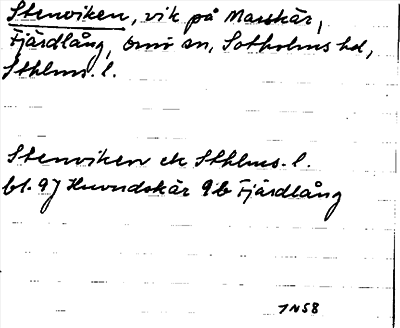 Stenviken, vik på Marskär,
Fjärdlång, Ornö sn, Sotholms hd,
Sthlms. l.
Stenviken ek Sthlms. l.
bl. 97 Huvudskär 9b Fjärdlång
1N58